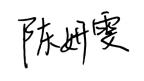 陈妍雯